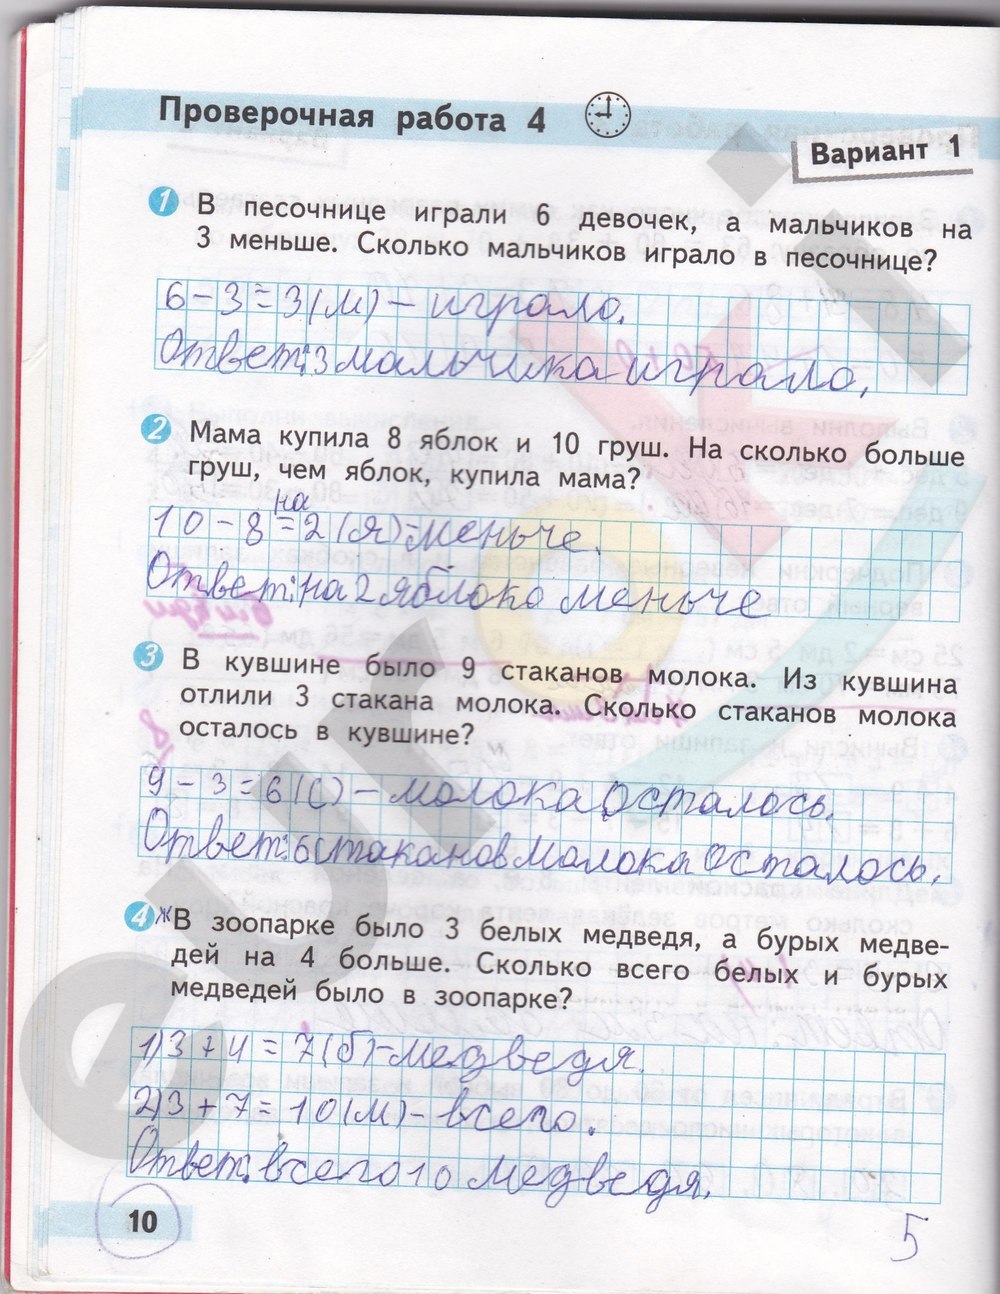 Проверочная работа 4
Вариант 1
1 В песочнице играли 6 девочек, а мальчиков на
3 меньше. Сколько мальчиков играло в песочнице?
6-3=3(м) - играло.
Ответ:3 мальчика играло.
2 Мама купила 8 яблок и 10 груш. На сколько больше
груш, чем яблок, купила мама?
на
10-8=2(я)-меньче.
Ответ:на 2 яблоко меньче
3 В кувшине было 9 стаканов молока. Из кувшина
отлили 3 стакана молока. Сколько стаканов молока
осталось в кувшине?
9-3=6(с) - молока осталось.
Ответ:6 стаканов малока осталось.
4* В зоопарке было 3 белых медведя, а бурых медве-
дей на 4 больше. Сколько всего белых и бурых
медведей было в зоопарке?
1)3+4=7(б)-медведя.
2)3+7=10(м)-всего.
Ответ:всего 10 медведя.
10
5
euroki